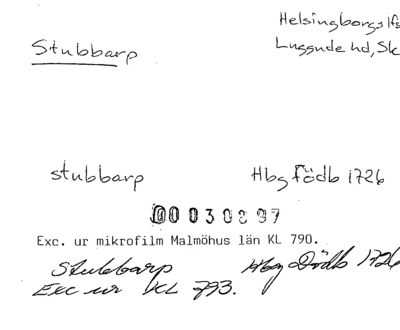 Helsingborgs lfs
Stubbarp
Luggude hd, Sk
stubbarp Hbg födb 1726
00030897
Exc. ur mikrofilm Malmöhus län KL 790.
Stubbarp Hbg Dödb 1726
Exc ur KL 793.